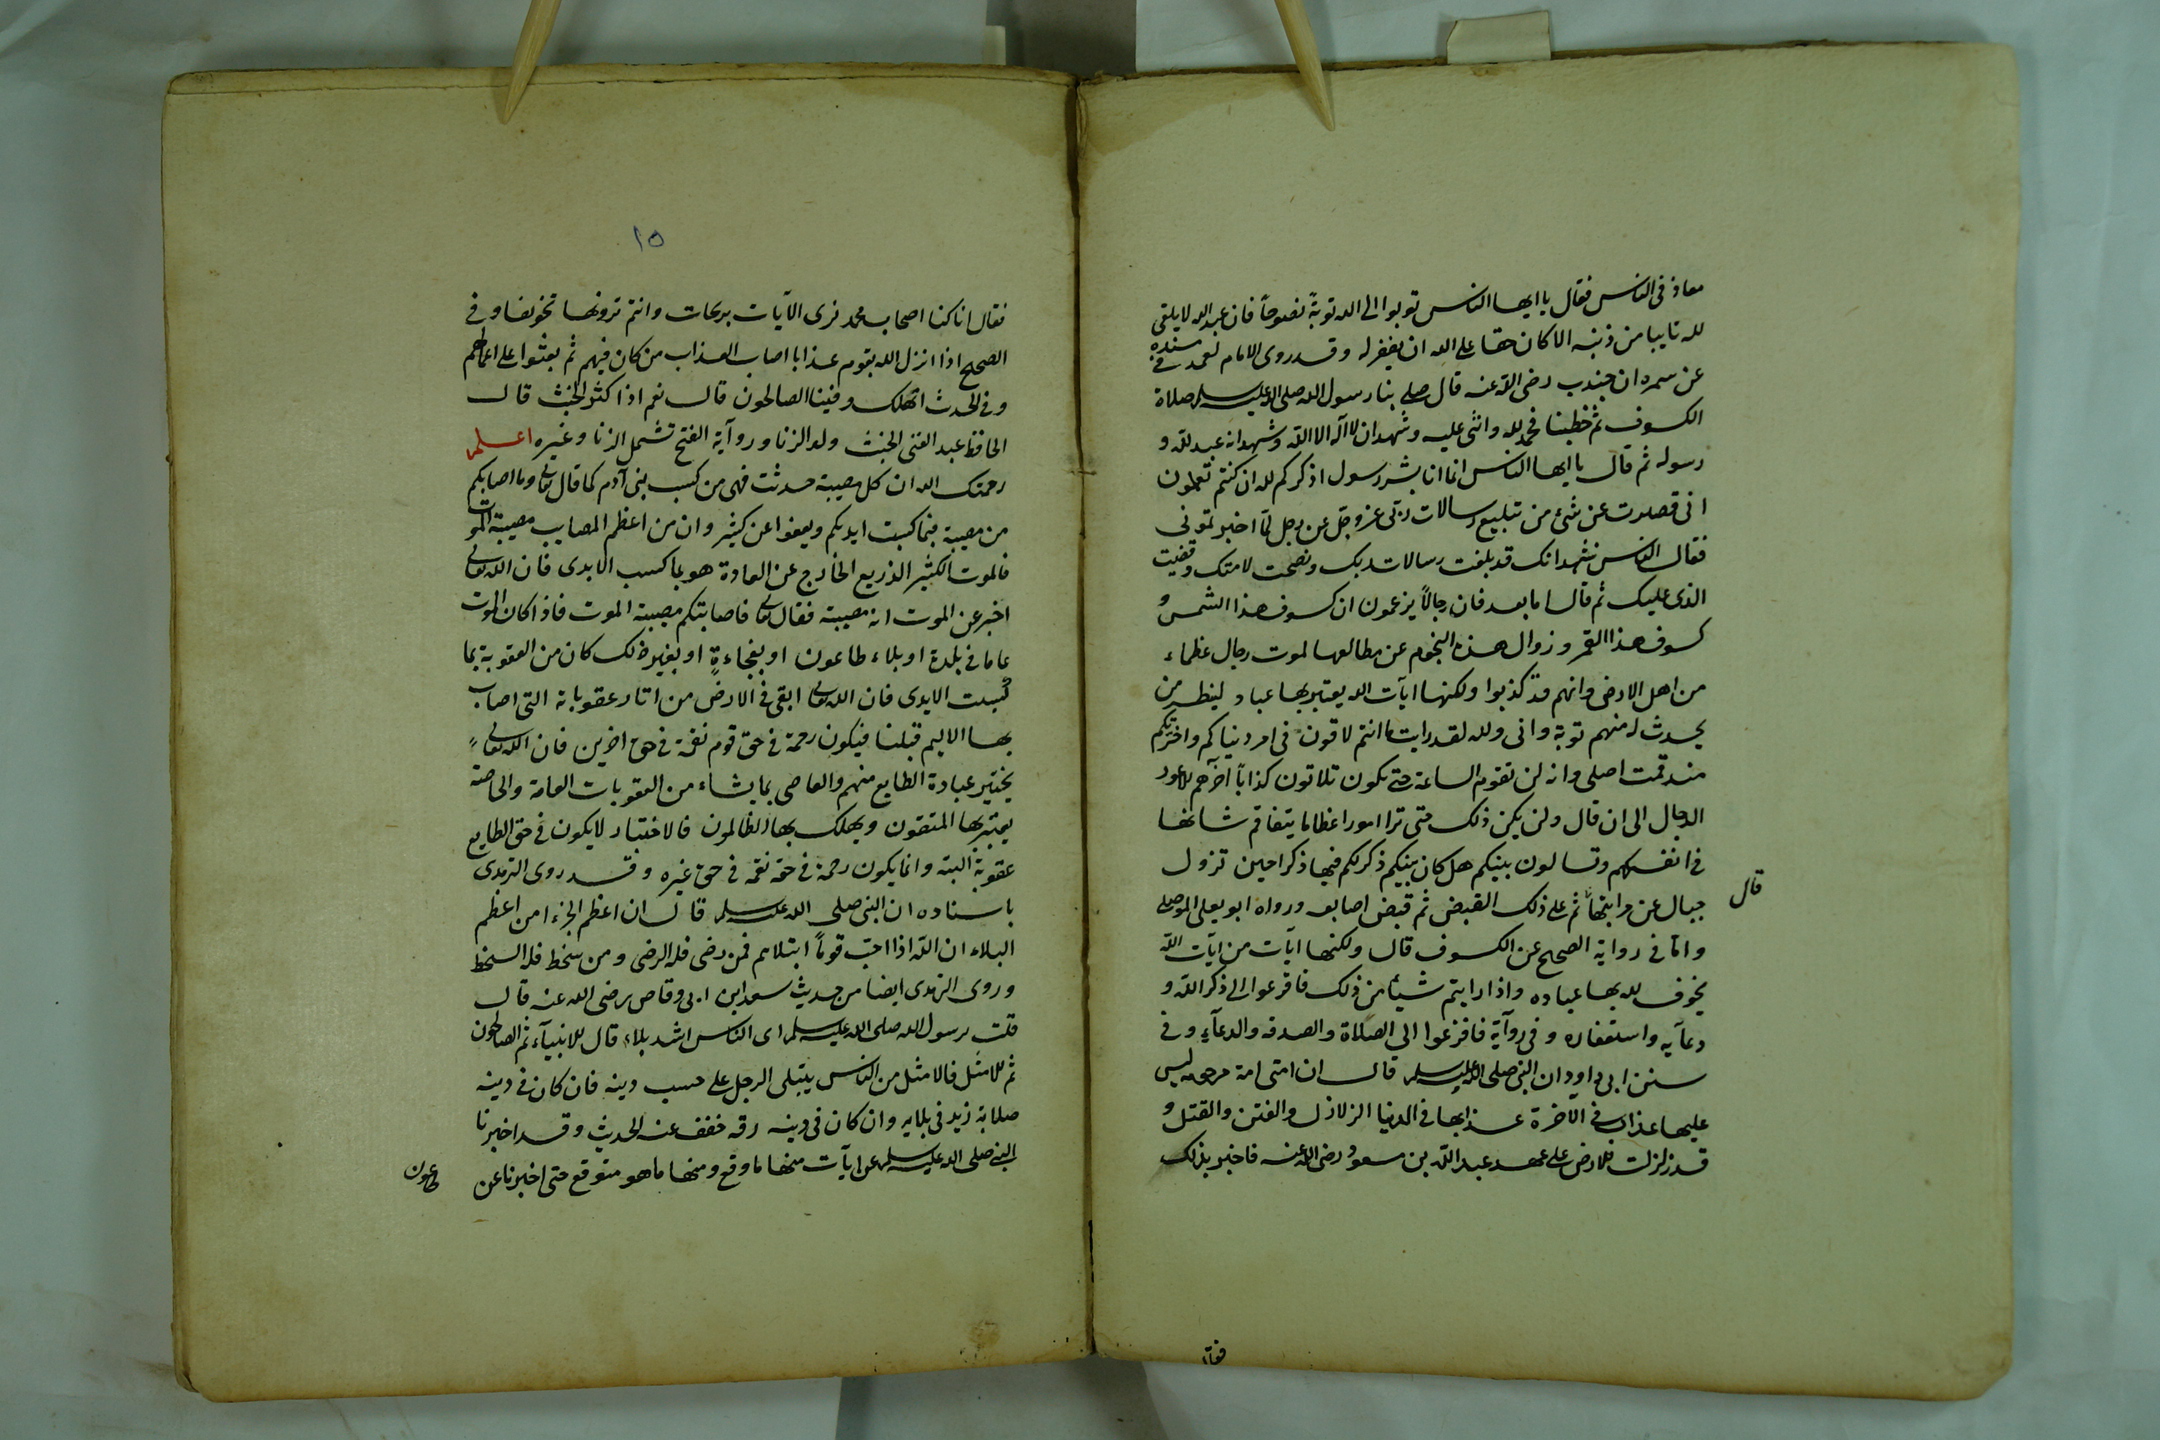 معاذ فى الناس فقال يا ايها الناس توبوا الى الله توبةً نصوحاً فان عبد الله لا يلقى
لله تايبا من ذنبه الا كان حقا على الله ان يغفر له وقد روى الامام احمد فى مسنده
عن سمره ابن جندب رضى الله عنه قال صلى بنا رسول الله صلى الله عليه وسلم صلاة
الكسوف ثم خطبنا فحمد لله واثنى عليه وشهد ان لا اله الا الله وشهد انه عبد لله و
رسوله ثم قال يا ايها الناس انما انا بشر رسول اذكركم لله ان كنتم تعلمون
انى قصرت عن شئ من تبليغ رسالات ربى عز وجل لمّا اخبرتمونى
فقال الناس نشهد انك قد بلغت رسالات ربك ونصحت لامتك وقضيت
الذى عليك ثم قال اما بعد فان رجالاً يزعمون ان كسوف هذا الشمس و
كسوف هذا القمر وزوال هذه النجوم عن مطالعها لموت رجال عظماء
من اهل الارض وانهم قد كذبوا ولكنها ايات الله يعتبر بها عباد لينظر من
يحدث له منهم توبة وانى ولله لقد رايت ما انتم لاقون فى امر دنياكم واخرتكم
منذ قمت اصلى وانه لن تقوم الساعة حتى يكون ثلاثون كذاباً آخرهم الاعور
الدجال الى ان قال ولن يكن ذلك حتى ترا امورا عظاما يتفاقم شانها
فى انفسكم وتسالون بينكم هل كان نبيكم ذكر لكم فيها ذكرا حين تزول
جبال عن مراتبها ثم على ذلك القبض ثم قبض اصابعه ورواه ابو يعلى الموصلى
قال
وامّا فى رواية الصحيح عن الكسوف قال ولكنها ايآت من ايآت الله
يخوف لله بها عباده واذا رايتم شيئا من ذلك فافزعوا الى ذكر الله و
دعآيه واستغفاره وفى روآية فافزعوا الى الصلاة والصدقه والدعآء وفى
سنن ابى داود ان النبى صلى الله عليه وسلم قال ان امتى امة مرحمه ليس
عليها عذاب فى الآخرة عذابها فى الدنيا الزلازل والفتن والقتل و
قد زلزلت للارض على عهد عبد الله بن مسعود رضى الله عنه فاخبر بذلك
فقال
١٥
فقال انا كنا اصحاب محمد نرى الآيات بركات وانتم ترونها تخويفا وفى
الصحيح اذا انزل الله بقوم عذابا اصاب العذاب من كان فيهم ثم بعثوا على اعمالهم
وفى الحدث اتهلك وفينا الصالحون قال نعم اذا كثر الخبث قال
الحافظ عبد الغنى الخبث ولد الزنا وروآية الفتح تشمل الزنا وغيره اعلم
رحمتك الله ان كل مصيبة حدثت فهى من كسب بنى آدم كما قال تعالى وما اصابكم
من مصيبة فبما كسبت ايديكم ويعفوا عن كثير وان من اعظم المصايب مصيبة الموت
فالموت الكثير الذريع الخارج عن العادة هو بما كسب الايدى فان الله تعالى
اخبر عن الموت انه مصيبة فقال تعالى فاصابتكم مصيبة الموت فاذا كان الموت
عاما فى بلدة او بلاء طاعون او بفجاءةٍ او بغير ذلك كان من العقوبة بما
كسبت الايدى فان الله تعالى ابقى فى الارض من اثار عقوباته التى اصاب
بها الاليم قبلنا فيكون رحمة فى حق قوم نقمة فى حق اخرين فان الله تعالى
يختبر عبادة الطايع منهم والعاصى بما يشاء من العقوبات العامة والخاصة
يعتبر بها المتقون ويهلك بها الظالمون فالاختبار لا يكون فى حق الطايع
عقوبة البتة وانما يكون رحمة فى حقه نقمة فى حق غيره وقد روى الترمذى
باسناده ان النبى صلى الله عليه وسلم قال ان اعظم الجزاء من اعظم
البلاء ان الله اذا احبّ قوماً ابتلاهم فمن رضى فله الرضى ومن سخط فله السخط
وروى الترمذى ايضا من حديث سعد ابن ابى وقاص رضى الله عنه قال
قلت يرسول الله صلى الله عليه وسلم اى الناس اشد بلاء قال للانبيآء ثم الصالحون
ثم للامثل فالامثل من الناس يبتلى الرجل على حسب دينه فان كان فى دينه
صلابة زيد فى بلايه وان كان فى دينه رقه خفف عنه الحديث وقد اخبرنا
النبى صلى الله عليه وسلم عن ايآت منها ما وقع ومنها ما هو متوقع حتى اخبرنا عن